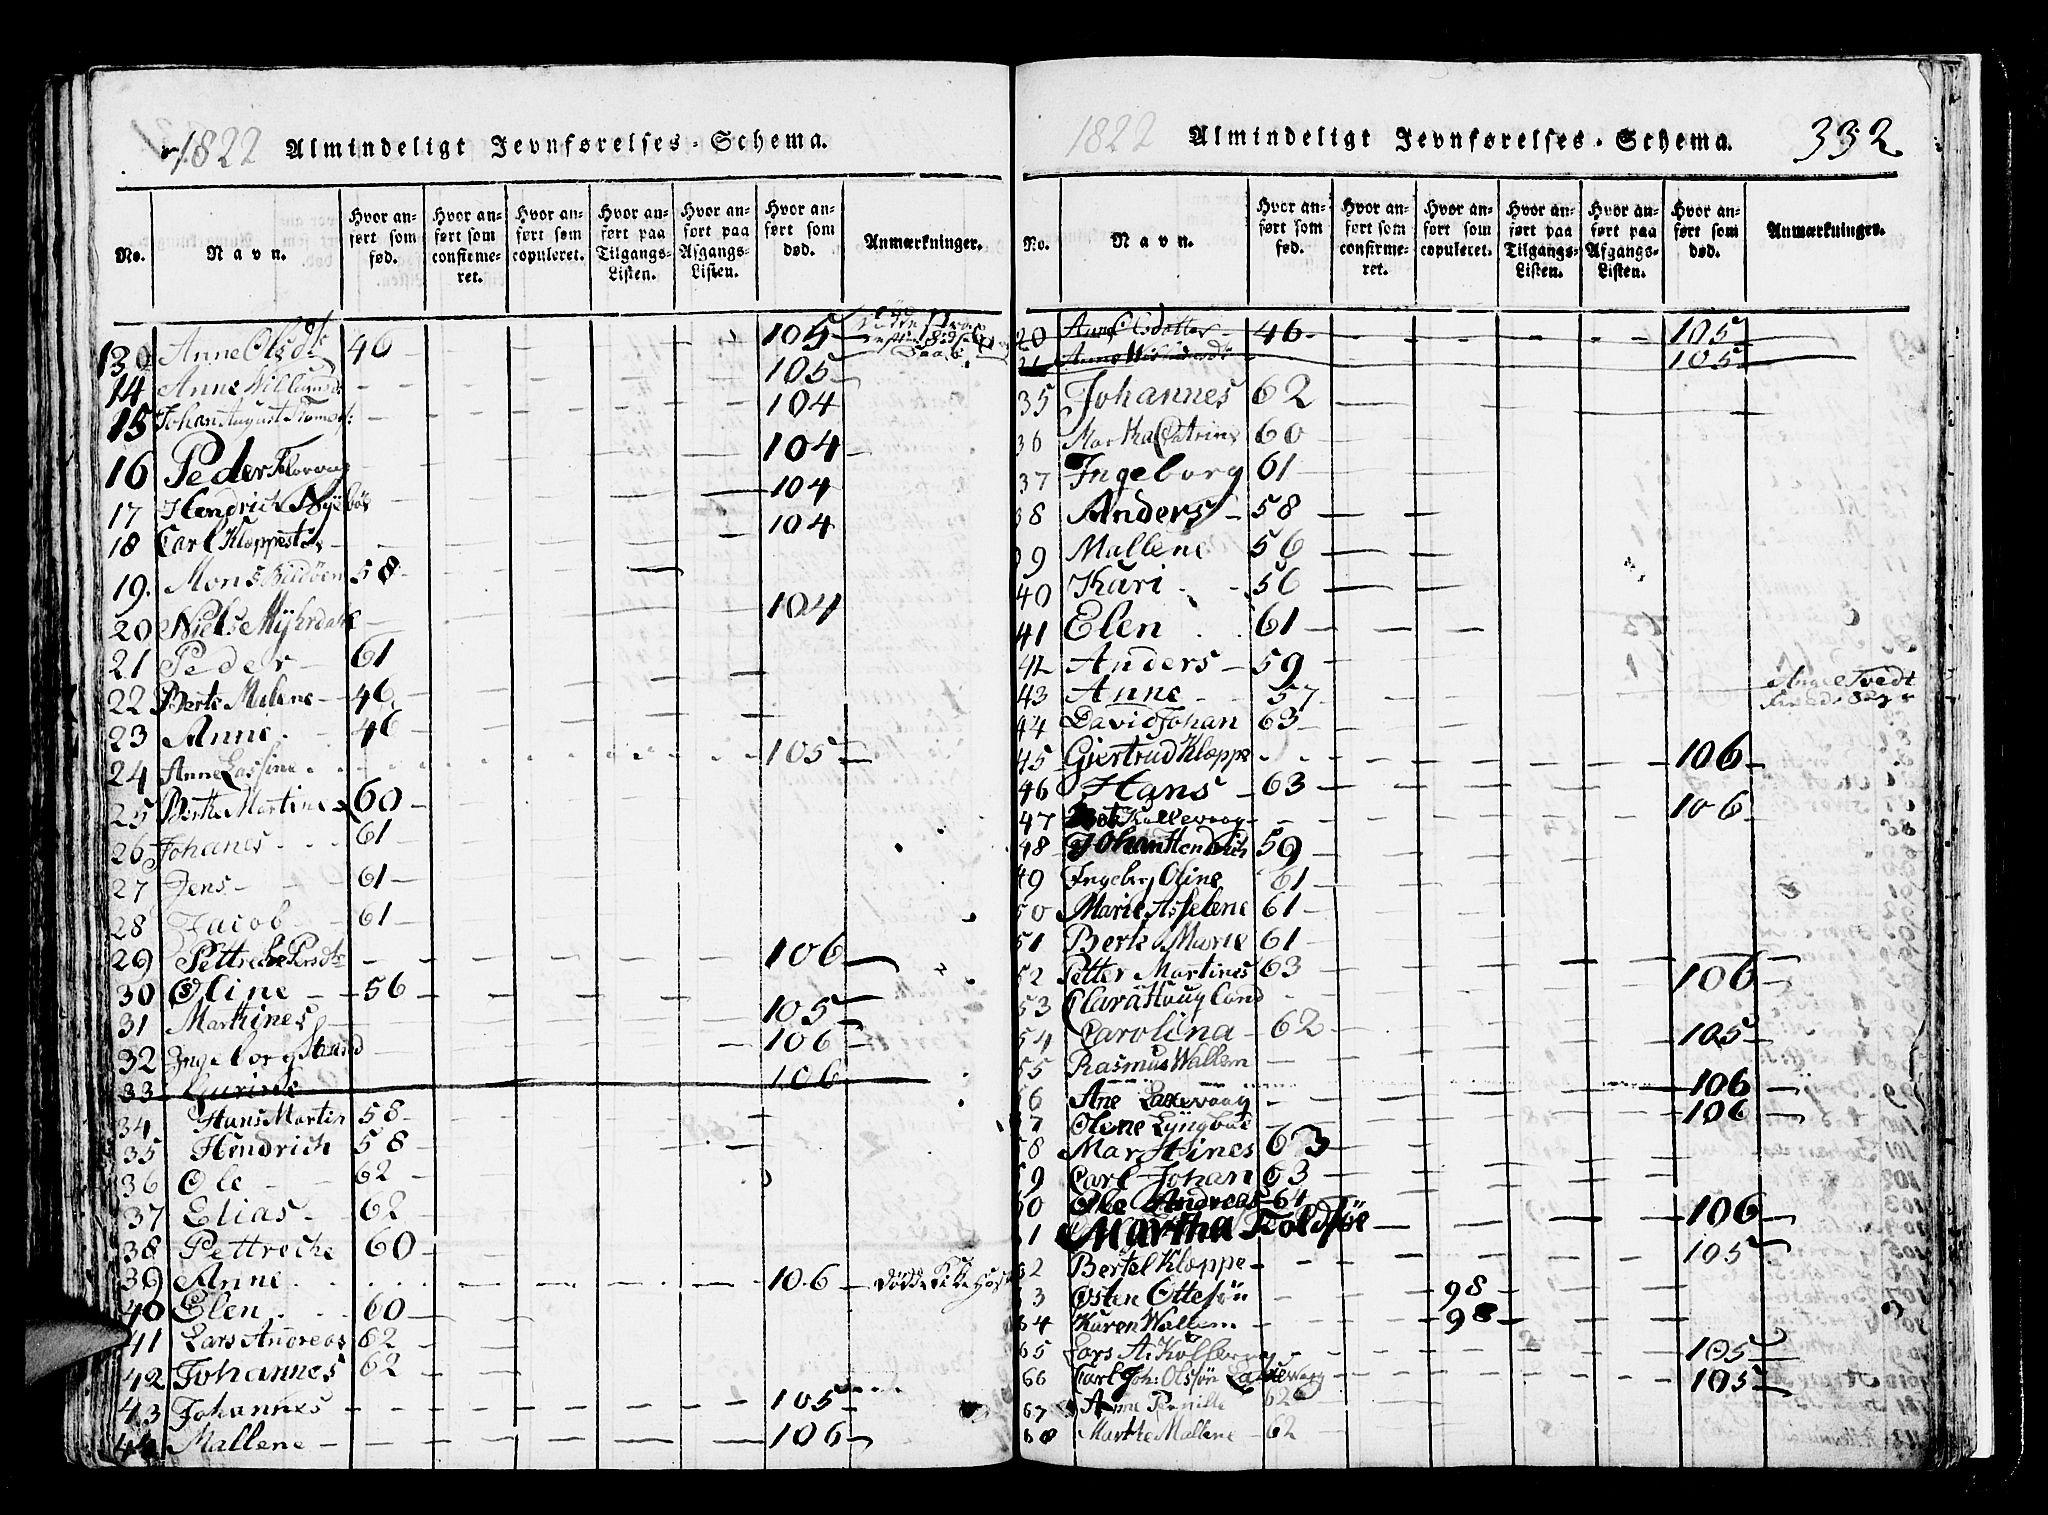 1822 Almindeligt Jevnførelses-Schema.
No. Navn. Hvor anført som fød. Hvor anført som confirmeret. Hvor anført som copuleret. Hvor anført paa Tilgangs-Listen. Hvor anført paa Afgangs-Listen. Hvor anført som død. Anmærkninger.
130 Anne Olsdtr 46 105
14 Anne Willumsdr 105
15 Johan August 104
16 Peder 104
17 Hendrich Nyebøe 104
18 Carl Kloppestøe 104
19. Mons 58
20 Niels Myhrdahl 104
21 Peder 61
22 Berte Malene 46
23 Anne 46
24 Anne Lassine 105
25 Berthe Martine 60
26 Johanes 61
27 Jens 61
28 Jacob 61
29 Pettreche 106
30 Oline 56
31 Marthines 105
32 Ingeborg Strand 106
33 Gurine 106
34 Hans Martin 58
35 Hendrich 58
36 Ole 62
37 Elias 62
38 Pettreche 60
39 Anne 106
40 Elen 60
41 Lars Andreas 62
42 Johannes 62
43 Johannes 105
44 Mallene 106
1822 Almindeligt Jevnførelses-Schema. 332
No. Navn. Hvor anført som fød. Hvor anført som confirmeret. Hvor anført som copuleret. Hvor anført paa Tilgangs-Listen. Hvor anført paa Afgangs-Listen. Hvor anført som død. Anmærkninger.
20 Anne Olsdatter 46 105
21 Anne 105
35 Johannes 62
36 Martha Catrine 60
37 Ingeborg 61
38 Anders 58
39 Mallene 56
40 Kari 56
41 Elen 61
42 Anders 59
43 Anne 57
44 David Johan 63
45 Giertrud Kloppe 106
46 Hans 63
47 Kallevaag 106
48 Johan Hendrich 59
49 Ingeborg Oline 61
50 Marie Asselene 61
51 Berthe Marie 61
52 Petter Martines 63
53 Clara Hougland 106
54 Carolina 62
55 Rasmus Wallem 105
56 Ane Laxevaag 106
57 Olene Lyngbøe 106
58 Marthines 63
59 Carl Johan 63
60 Ole Andreas 64
61 Martha Toldsøe 106
62 Bertel Kloppe 105
63 Østen Ottesøn 98
64 Karen Wallem 98
65 Lars A. 105
66 Carl Joh: Olssøn Laxevaag 105
67 Anne Pernille 62
68 Marthe Mallene 62